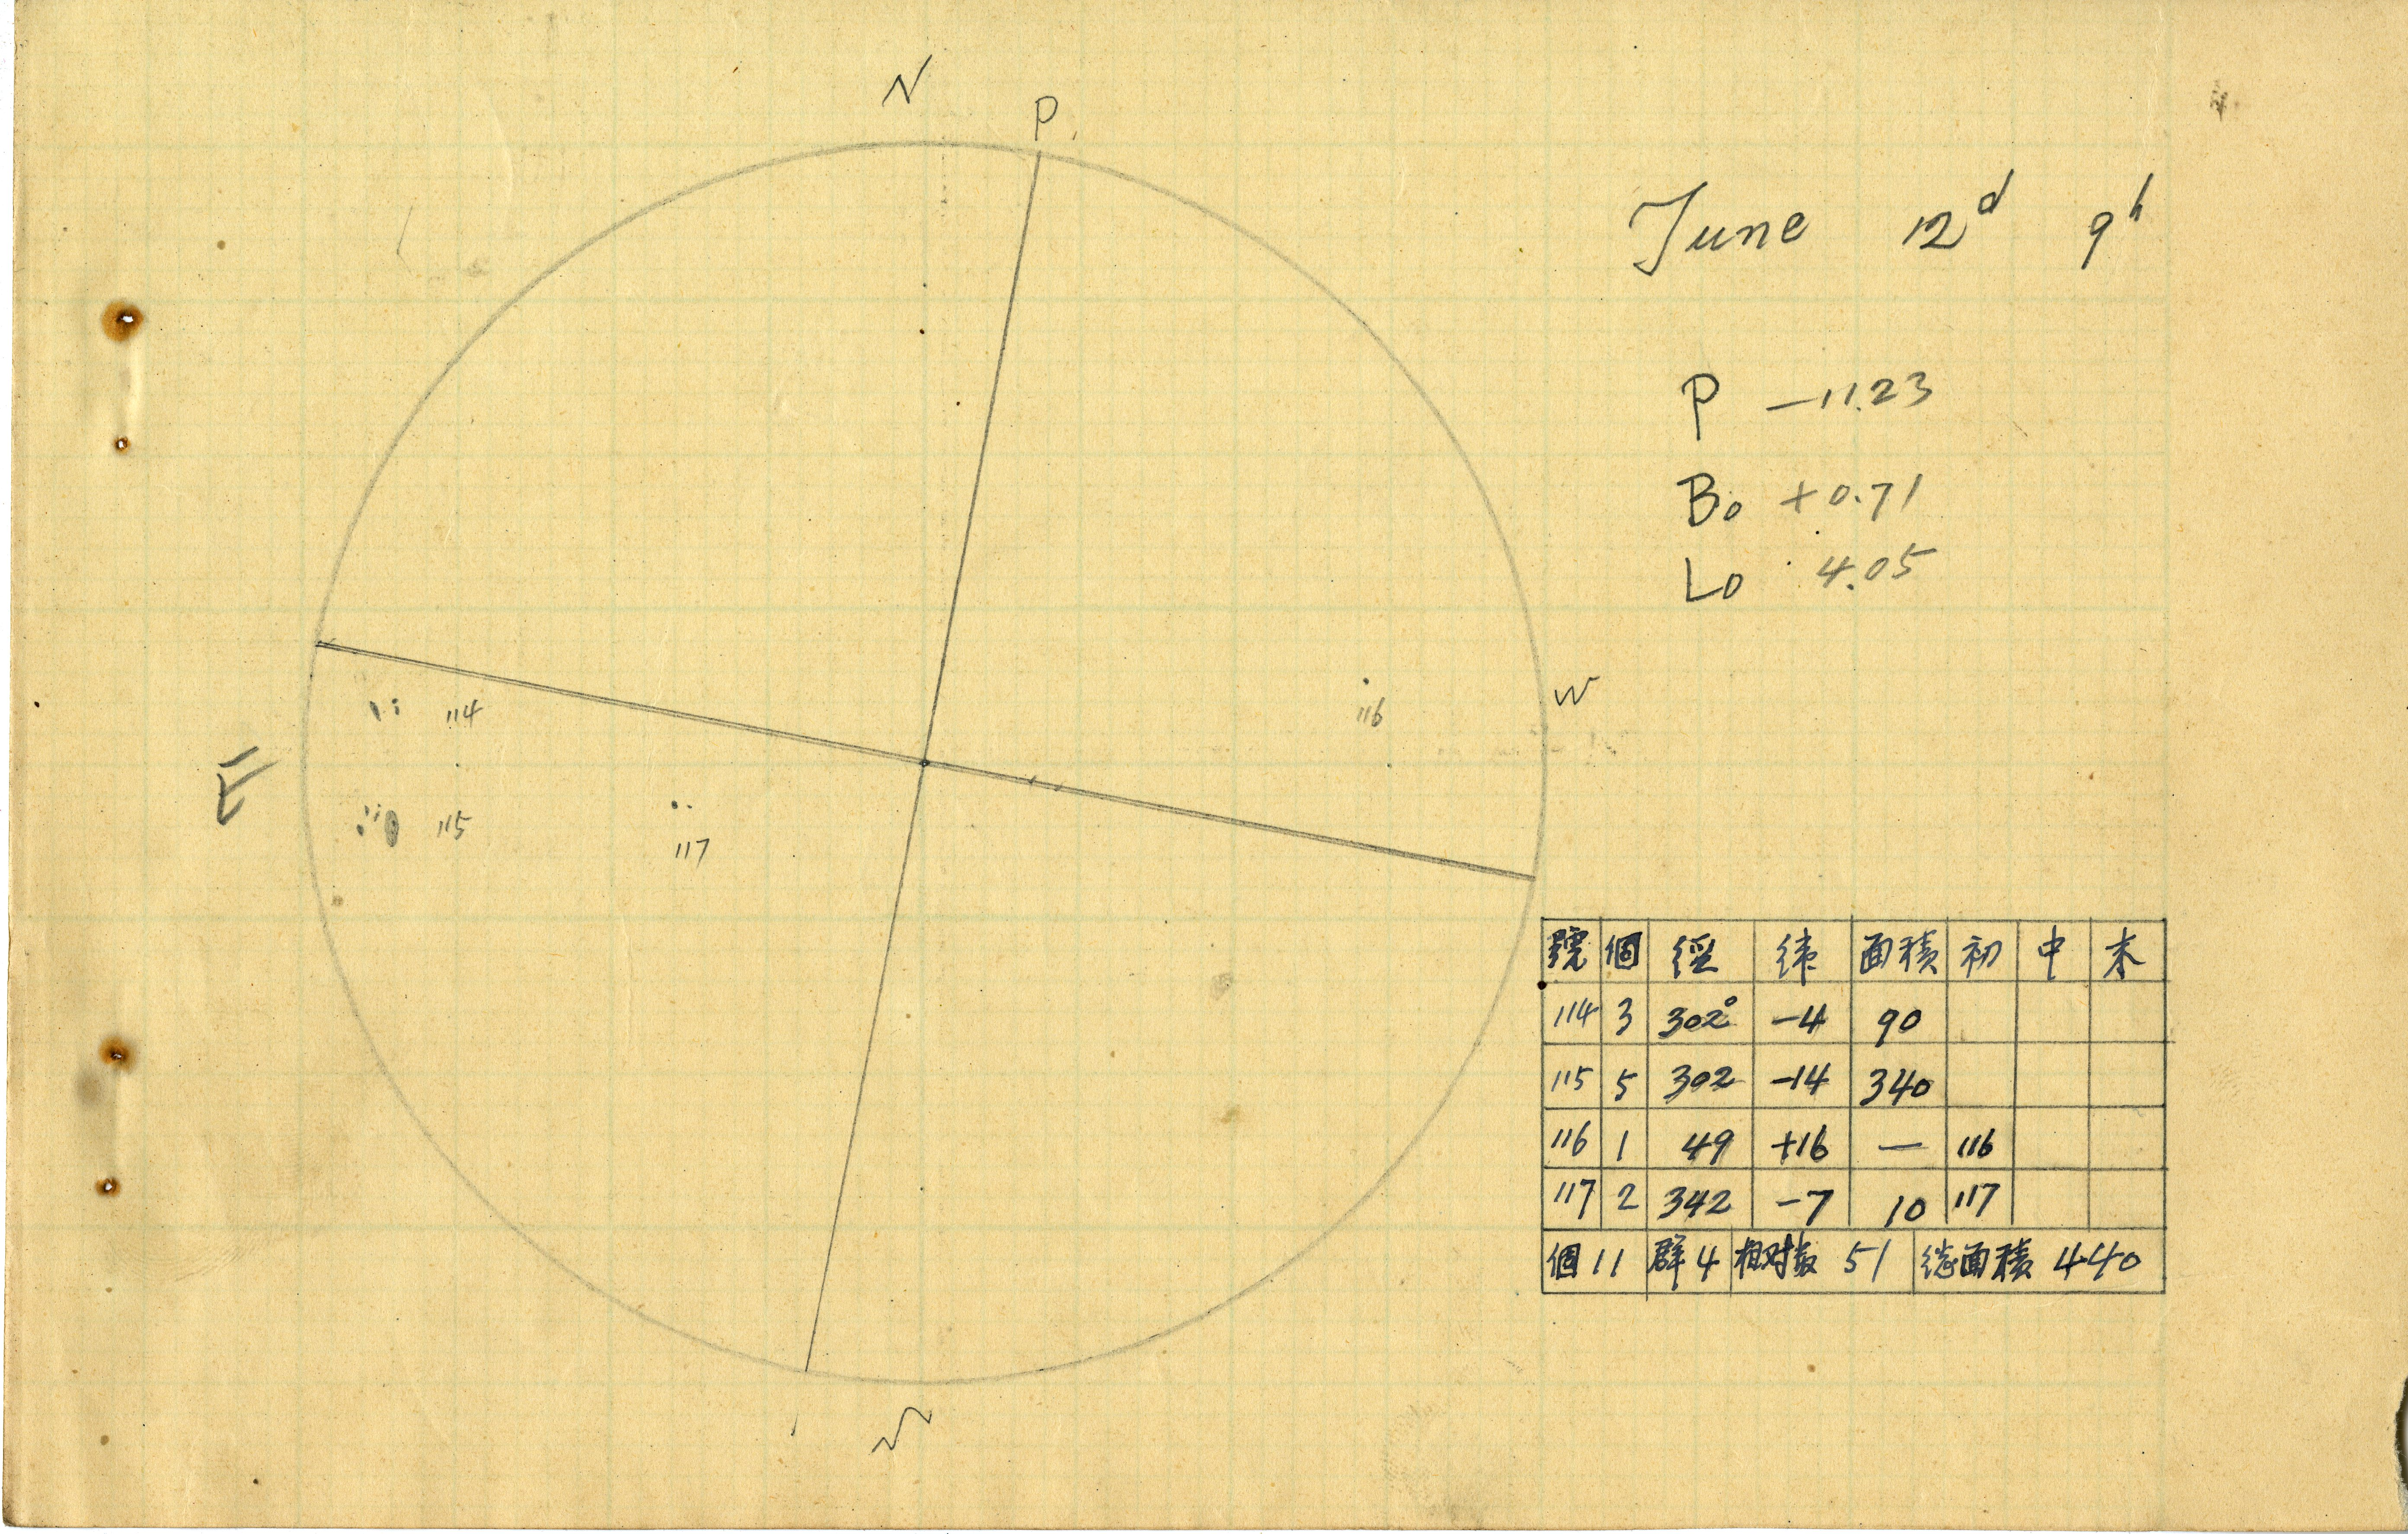 N
P
June 12ᵈ 9ʰ
P −11.23
B₀ +0.71
L₀ 4.05
W
114
116
E
115
117
號 個 經 緯 面積 初 中 末
114 3 302° −4 90
115 5 302 −14 340
116 1 49 +16 — 116
117 2 342 −7 10 117
個 11 群 4 相対数 51 総面積 440
S